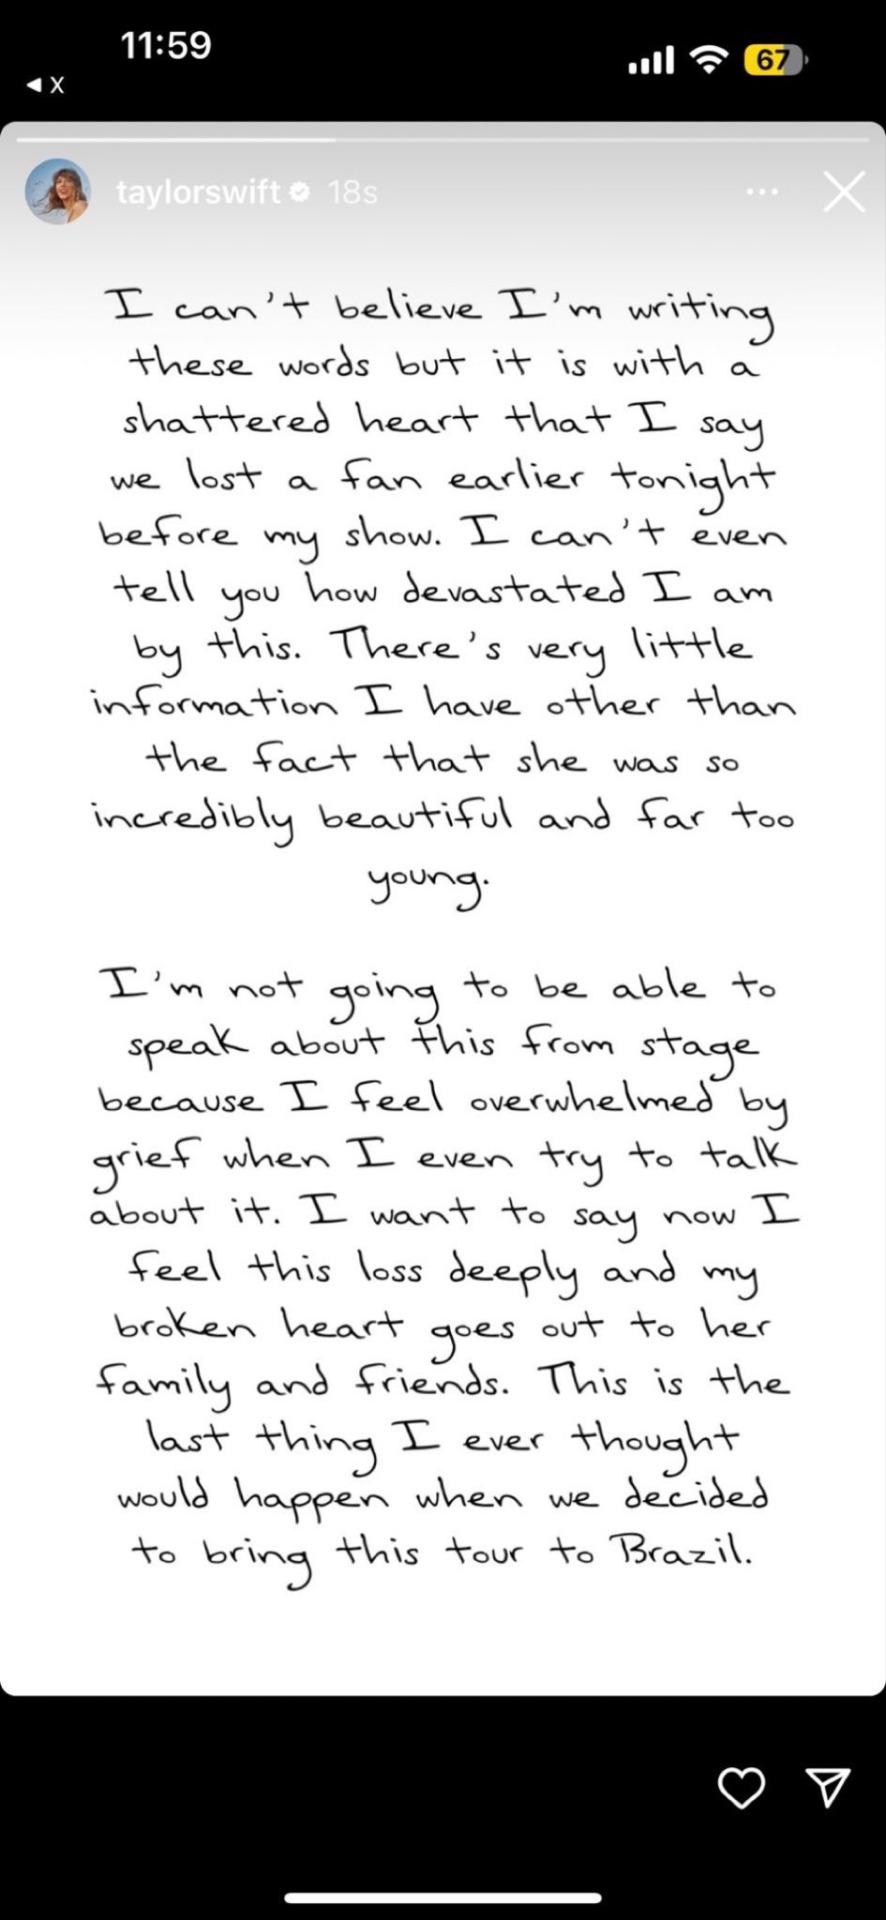 11:59
67
◀ X
taylorswift 18s
I can't believe I'm writing
these words but it is with a
shattered heart that I say
we lost a fan earlier tonight
before my show. I can't even
tell you how devastated I am
by this. There's very little
information I have other than
the fact that she was so
incredibly beautiful and far too
young.
I'm not going to be able to
speak about this from stage
because I feel overwhelmed by
grief when I even try to talk
about it. I want to say now I
feel this loss deeply and my
broken heart goes out to her
family and friends. This is the
last thing I ever thought
would happen when we decided
to bring this tour to Brazil.